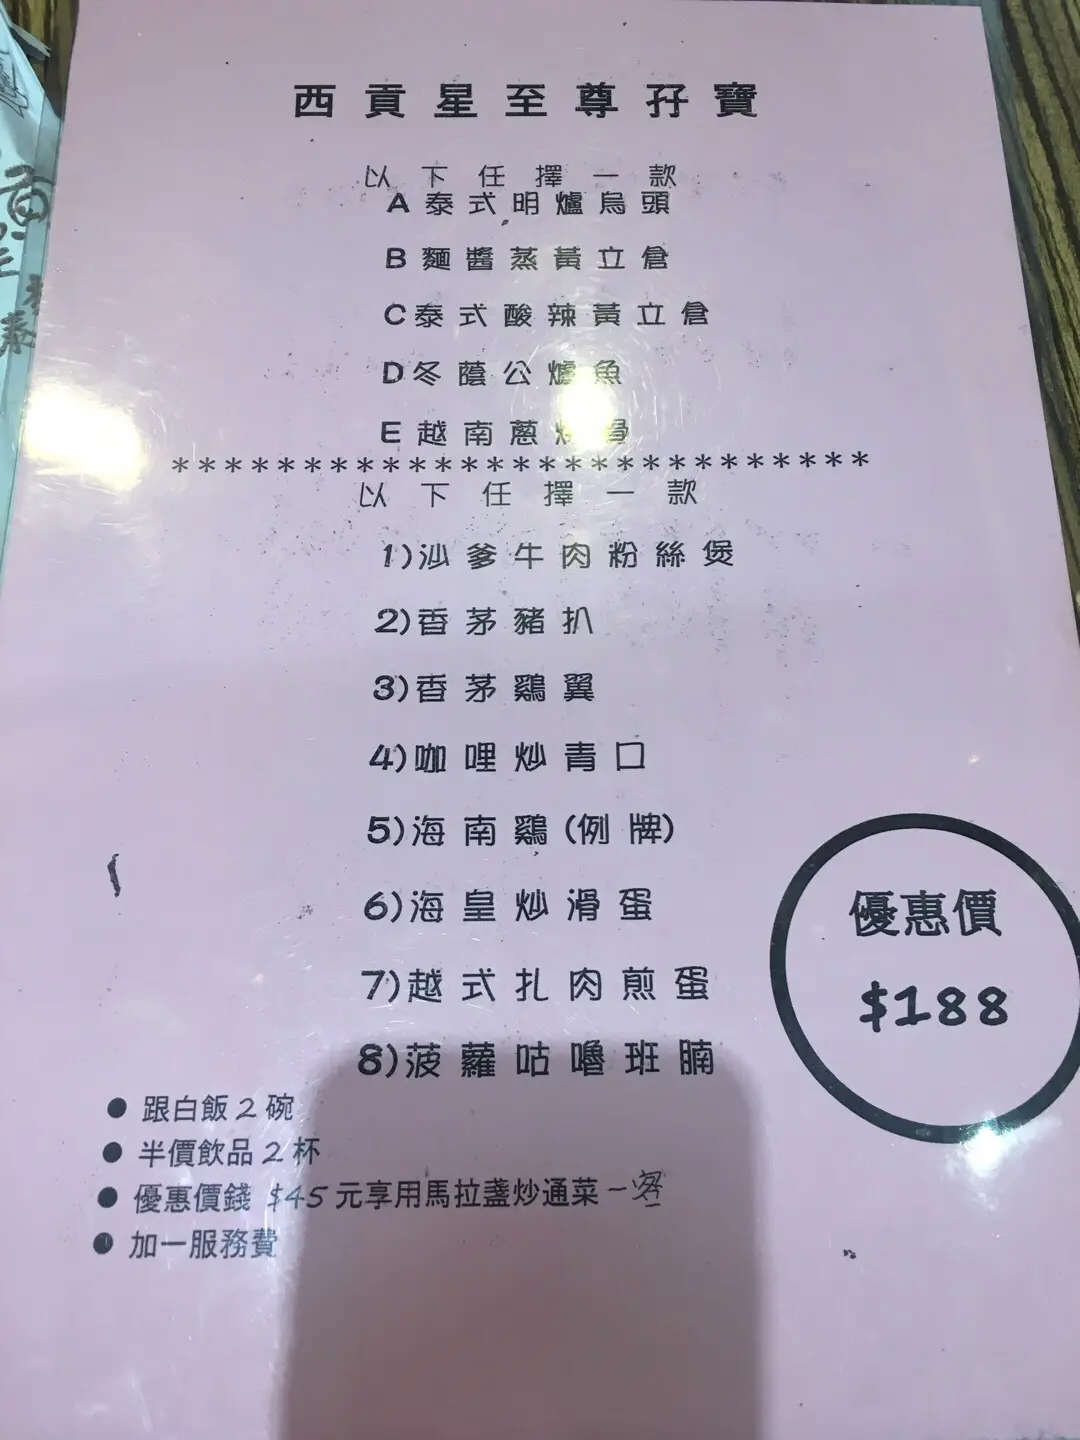 西貢星至尊孖寶
以下任擇一款
A 泰式明爐烏頭
B 麵醬蒸黃立倉
C 泰式酸辣黃立倉
D 冬蔭公爐魚
E 越南蔥
****************************
以下任擇一款
1) 沙爹牛肉粉絲煲
2) 香茅豬扒
3) 香茅鷄翼
4) 咖哩炒青口
5) 海南鷄 (例牌)
6) 海皇炒滑蛋
7) 越式扎肉煎蛋
8) 菠蘿咕嚕班腩
優惠價
$188
● 跟白飯 2 碗
● 半價飲品 2 杯
● 優惠價錢 $45 元享用馬拉盞炒通菜一客
● 加一服務費